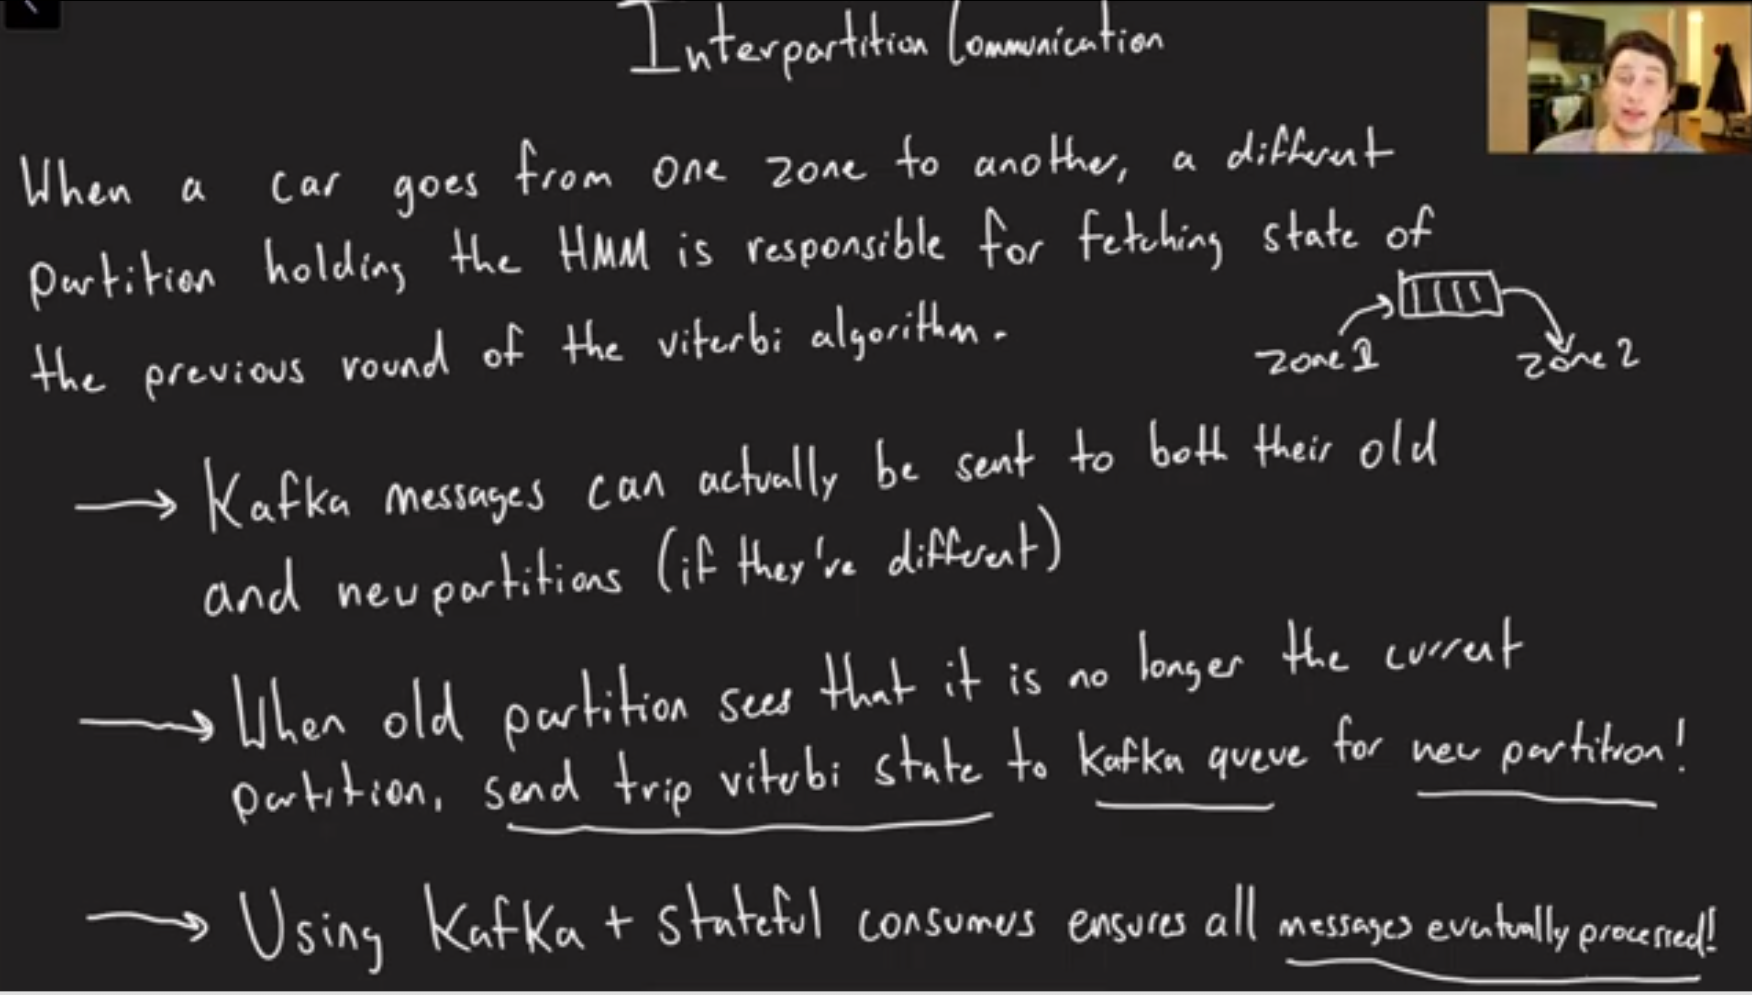 Interpartition Communication
When a car goes from one zone to another, a different
partition holding the HMM is responsible for fetching state of
the previous round of the viterbi algorithm.
zone 1
zone 2
→ Kafka messages can actually be sent to both their old
and new partitions (if they're different)
→ When old partition sees that it is no longer the current
partition, send trip viterbi state to kafka queue for new partition!
→ Using Kafka + stateful consumers ensures all messages eventually processed!